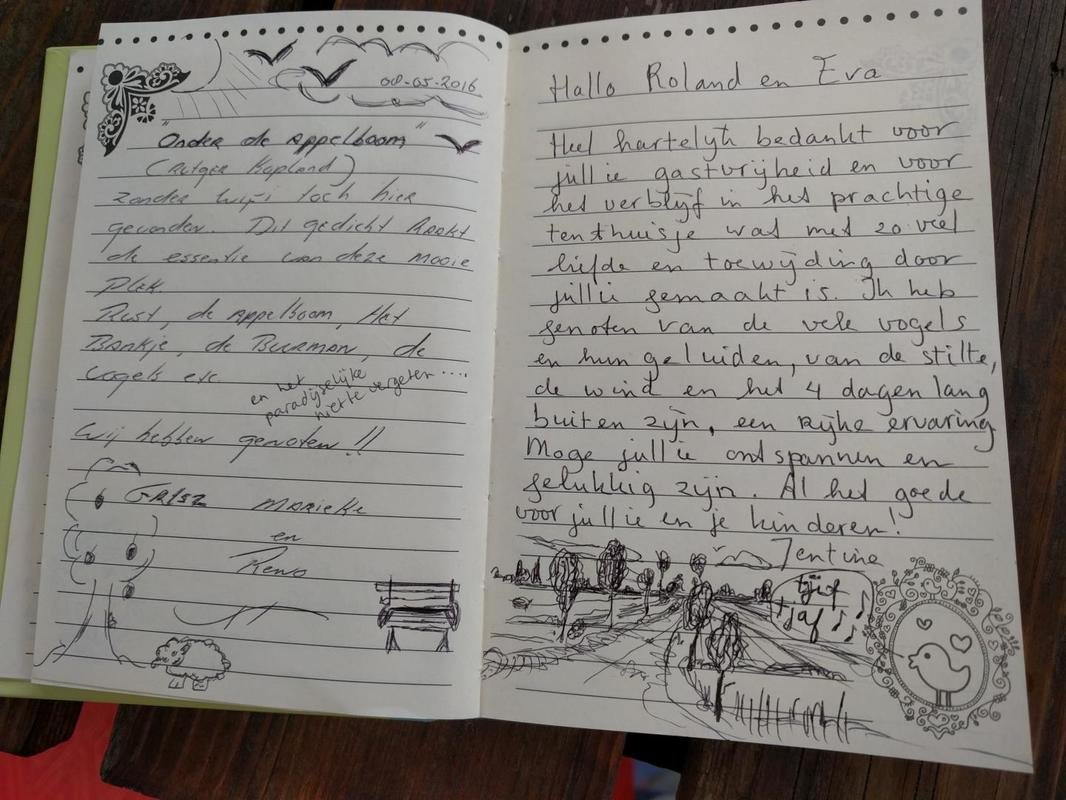 08-05-2016
"Onder de Appelboom"
(Rutger Kopland)
zonder wifi toch hier
gevonden. Dit gedicht Raakt
de essentie van deze mooie
Plek.
Rust, de Appelboom, Het
Bankje, de Buurman, de
vogels etc.
en het
paradijselijke
niet te vergeten ....
Wij hebben genoten !!
Marieke
en
Hallo Roland en Eva
Heel hartelijk bedankt voor
jullie gastvrijheid en voor
het verblijf in het prachtige
tenthuisje wat met zo veel
liefde en toewijding door
jullie gemaakt is. Ik heb
genoten van de vele vogels
en hun geluiden, van de stilte,
de wind en het 4 dagen lang
buiten zijn, een Rijke ervaring
Moge jullie ontspannen en
gelukkig zijn. Al het goede
voor jullie en je kinderen!
Jentine
tjif
tjaf